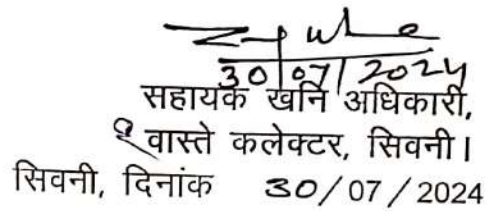 30/07/2024
सहायक खनि अधिकारी,
वास्ते कलेक्टर, सिवनी।
सिवनी, दिनांक 30/07/2024